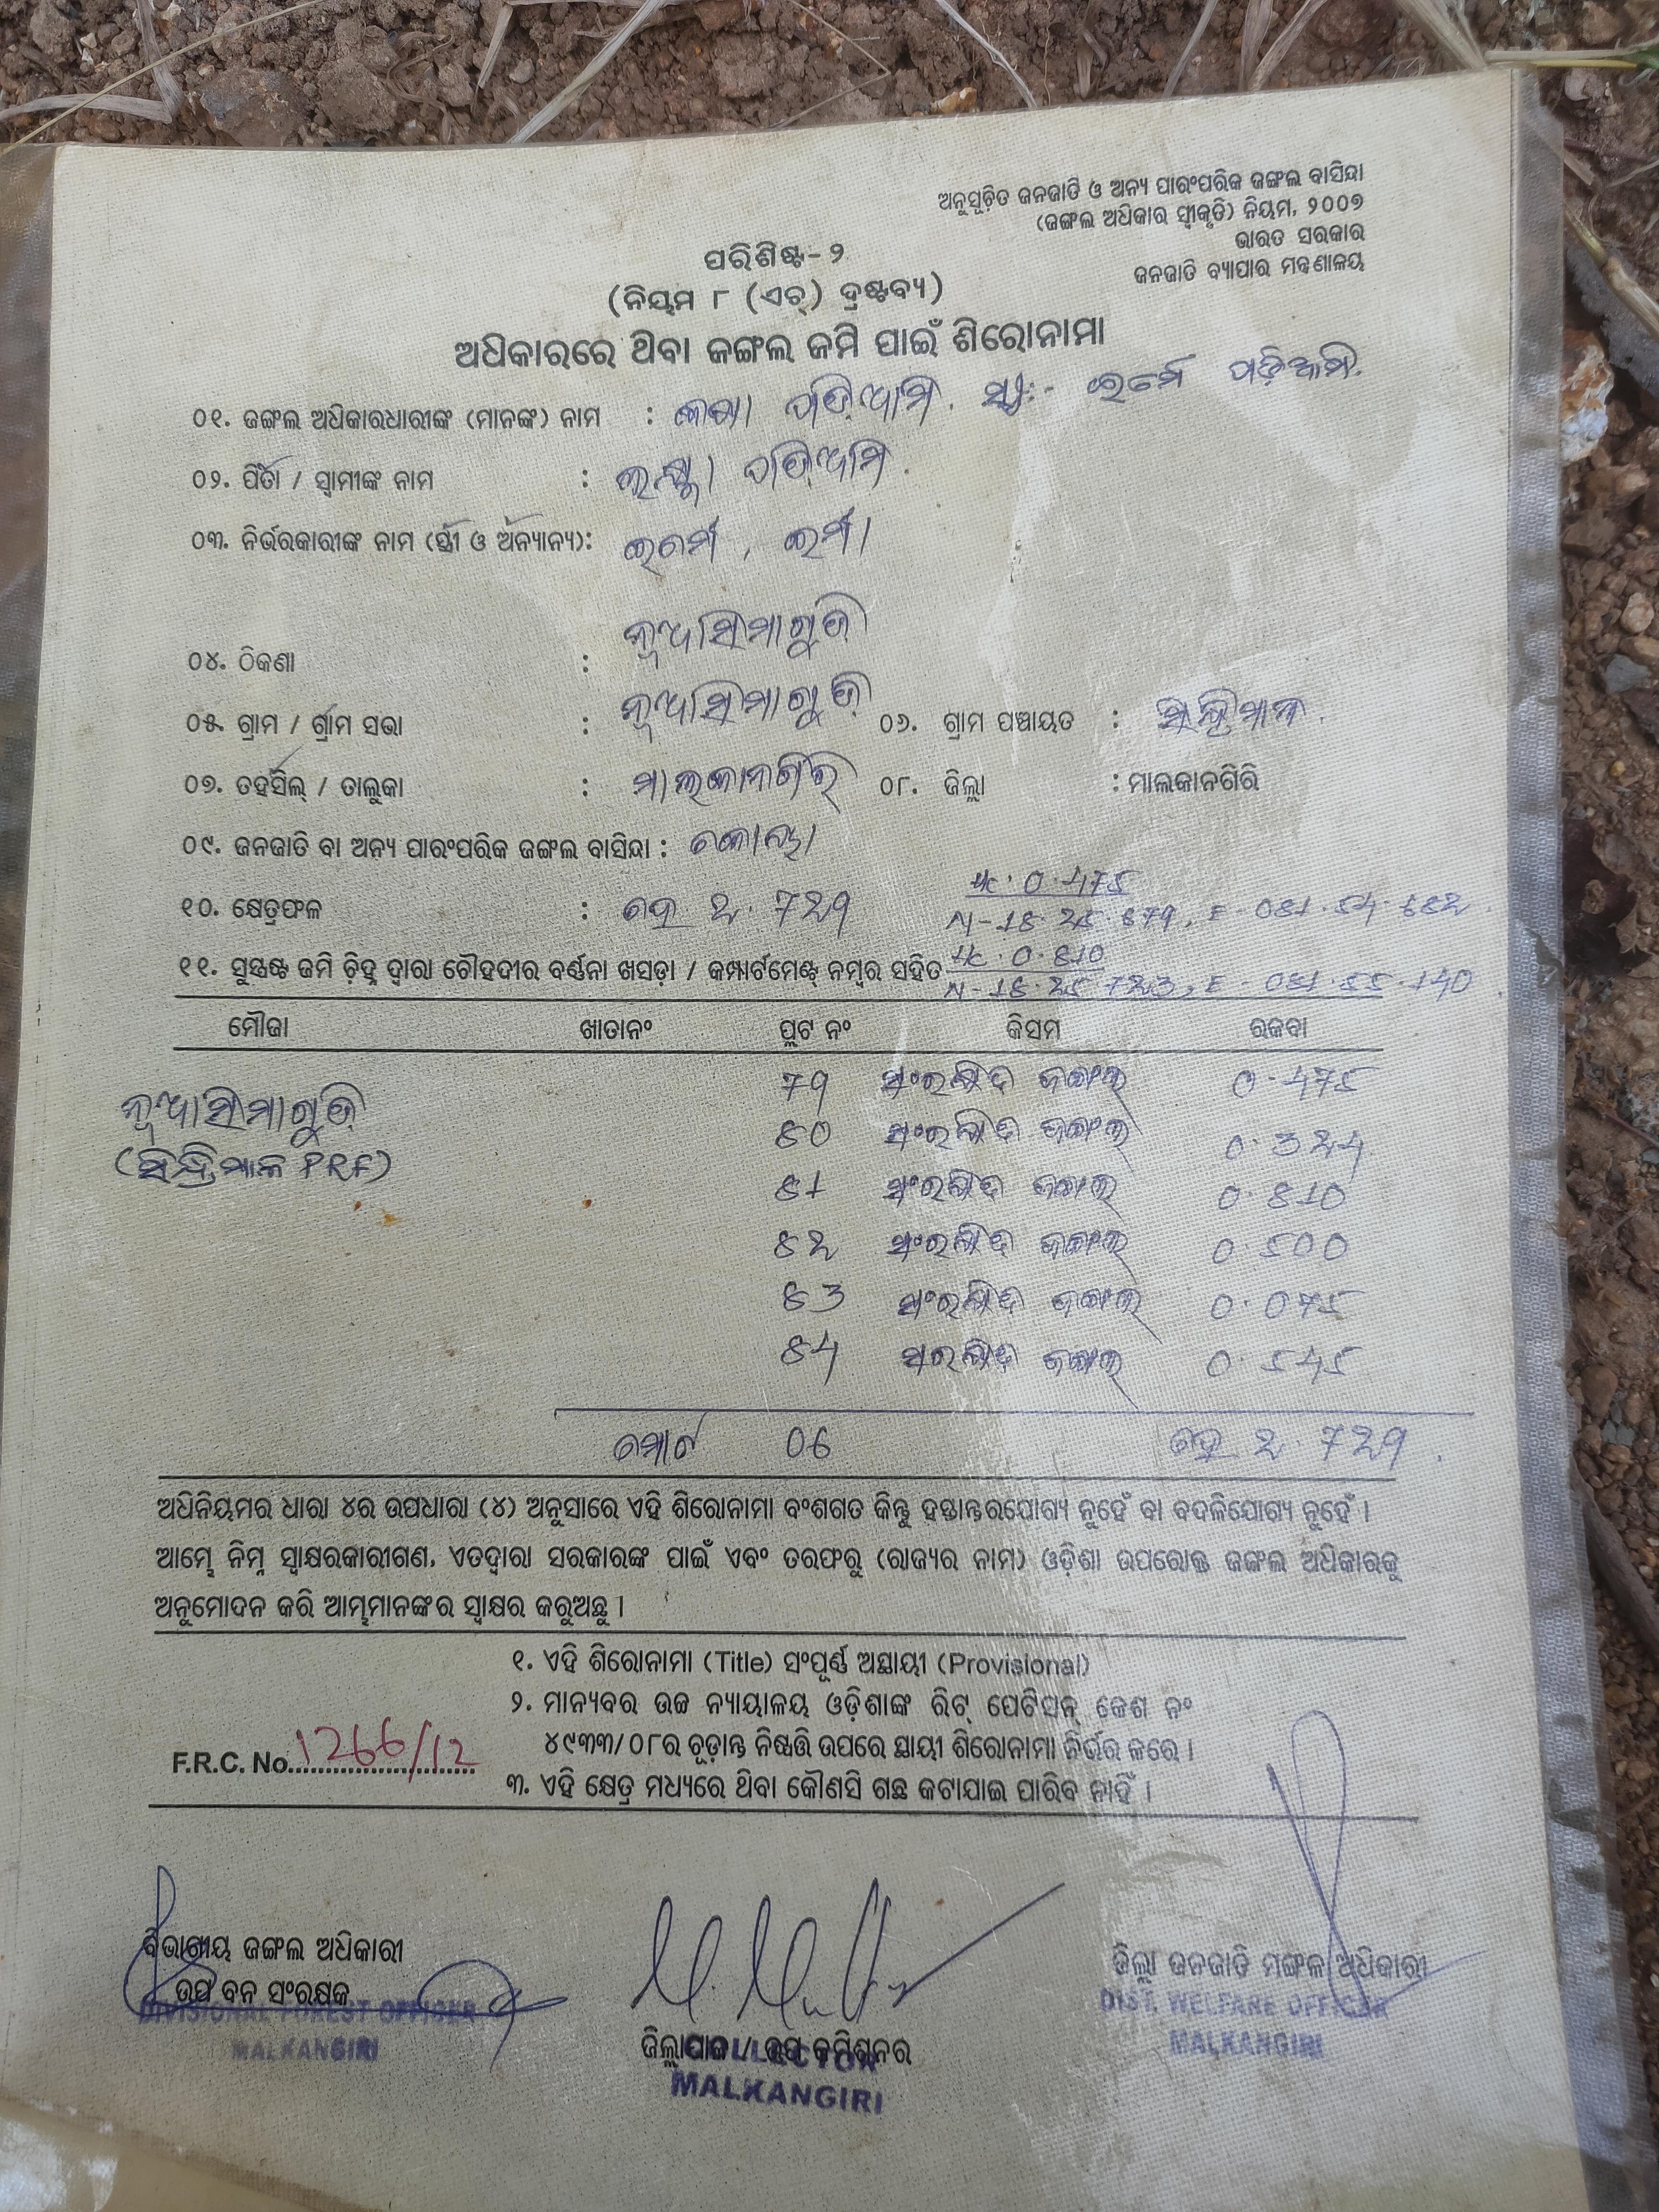 ଅନୁସୂଚିତ ଜନଜାତି ଓ ଅନ୍ୟ ପାରଂପରିକ ଜଙ୍ଗଲ ବାସିନ୍ଦା
(ଜଙ୍ଗଲ ଅଧିକାର ସ୍ୱୀକୃତି) ନିୟମ, ୨୦୦୭
ଭାରତ ସରକାର
ଜନଜାତି ବ୍ୟାପାର ମନ୍ତ୍ରଣାଳୟ
ପରିଶିଷ୍ଟ-୨
(ନିୟମ ୮ (ଏଚ୍) ଦ୍ରଷ୍ଟବ୍ୟ)
ଅଧିକାରରେ ଥିବା ଜଙ୍ଗଲ ଜମି ପାଇଁ ଶିରୋନାମା
୦୧. ଜଙ୍ଗଲ ଅଧିକାରଧାରୀଙ୍କ (ମାନଙ୍କ) ନାମ : ପଡ଼ିଆମି. ସ୍ତ୍ରୀ:- ଇର୍ମେ ପଡ଼ିଆମି.
୦୨. ପିତା / ସ୍ୱାମୀଙ୍କ ନାମ : ପଡ଼ିଆମି.
୦୩. ନିର୍ଭରକାରୀଙ୍କ ନାମ (ସ୍ତ୍ରୀ ଓ ଅନ୍ୟାନ୍ୟ): ଇର୍ମେ, ଇର୍ମା
୦୪. ଠିକଣା : ନୂଆସିମାଗୁଡ଼ି
୦୫. ଗ୍ରାମ / ଗ୍ରାମ ସଭା : ନୂଆସିମାଗୁଡ଼ି ୦୬. ଗ୍ରାମ ପଞ୍ଚାୟତ : ସିନ୍ଦ୍ରିମାଳ.
୦୭. ତହସିଲ୍ / ତାଲୁକା : ମାଲକାନଗିରି ୦୮. ଜିଲ୍ଲା : ମାଲକାନଗିରି
୦୯. ଜନଜାତି ବା ଅନ୍ୟ ପାରଂପରିକ ଜଙ୍ଗଲ ବାସିନ୍ଦା : କୋୟା
Hc. 0.475
୧୦. କ୍ଷେତ୍ରଫଳ : ହେ 2.729 N-18.25.879, E-081.54.882
Hc. 0.810
୧୧. ସୁସ୍ପଷ୍ଟ ଜମି ଚିହ୍ନ ଦ୍ୱାରା ଚୌହଦୀର ବର୍ଣ୍ଣନା ଖସଡ଼ା / କମ୍ପାର୍ଟମେଣ୍ଟ୍ ନମ୍ବର ସହିତ N-18.25.723, E-081.55.140
ମୌଜା ଖାତାନଂ ପ୍ଲଟ ନଂ କିସମ ରକବା
ନୂଆସିମାଗୁଡ଼ି 79 ସଂରକ୍ଷିତ ଜଙ୍ଗଲ 0.475
(ସିନ୍ଦ୍ରିମାଳ PRF) 80 ସଂରକ୍ଷିତ ଜଙ୍ଗଲ 0.324
81 ସଂରକ୍ଷିତ ଜଙ୍ଗଲ 0.810
82 ସଂରକ୍ଷିତ ଜଙ୍ଗଲ 0.500
83 ସଂରକ୍ଷିତ ଜଙ୍ଗଲ 0.075
84 ସଂରକ୍ଷିତ ଜଙ୍ଗଲ 0.545
ମୋଟ 06 ହେ 2.729
ଅଧିନିୟମର ଧାରା ୪ର ଉପଧାରା (୪) ଅନୁସାରେ ଏହି ଶିରୋନାମା ବଂଶଗତ କିନ୍ତୁ ହସ୍ତାନ୍ତରଯୋଗ୍ୟ ନୁହେଁ ବା ବଦଳିଯୋଗ୍ୟ ନୁହେଁ ।
ଆମ୍ଭେ ନିମ୍ନ ସ୍ୱାକ୍ଷରକାରୀଗଣ, ଏତଦ୍ୱାରା ସରକାରଙ୍କ ପାଇଁ ଏବଂ ତରଫରୁ (ରାଜ୍ୟର ନାମ) ଓଡ଼ିଶା ଉପରୋକ୍ତ ଜଙ୍ଗଲ ଅଧିକାରକୁ
ଅନୁମୋଦନ କରି ଆମ୍ଭମାନଙ୍କର ସ୍ୱାକ୍ଷର କରୁଅଛୁ ।
୧. ଏହି ଶିରୋନାମା (Title) ସଂପୂର୍ଣ୍ଣ ଅସ୍ଥାୟୀ (Provisional)
୨. ମାନ୍ୟବର ଉଚ୍ଚ ନ୍ୟାୟାଳୟ ଓଡ଼ିଶାଙ୍କ ରିଟ୍ ପେଟିସନ୍ କେଶ ନଂ
୪୯୩୩/୦୮ର ଚୂଡ଼ାନ୍ତ ନିଷ୍ପତ୍ତି ଉପରେ ସ୍ଥାୟୀ ଶିରୋନାମା ନିର୍ଭର କରେ ।
F.R.C. No. 1266/12
୩. ଏହି କ୍ଷେତ୍ର ମଧ୍ୟରେ ଥିବା କୌଣସି ଗଛ କଟାଯାଇ ପାରିବ ନାହିଁ ।
ବିଭାଗୀୟ ଜଙ୍ଗଲ ଅଧିକାରୀ
ଉପ ବନ ସଂରକ୍ଷକ
DIVISIONAL FOREST OFFICER
MALKANGIRI
ଜିଲ୍ଲାପାଳ / ଉପ କମିଶନର
COLLECTOR
MALKANGIRI
ଜିଲ୍ଲା ଜନଜାତି ମଙ୍ଗଳ ଅଧିକାରୀ
DIST. WELFARE OFFICER
MALKANGIRI